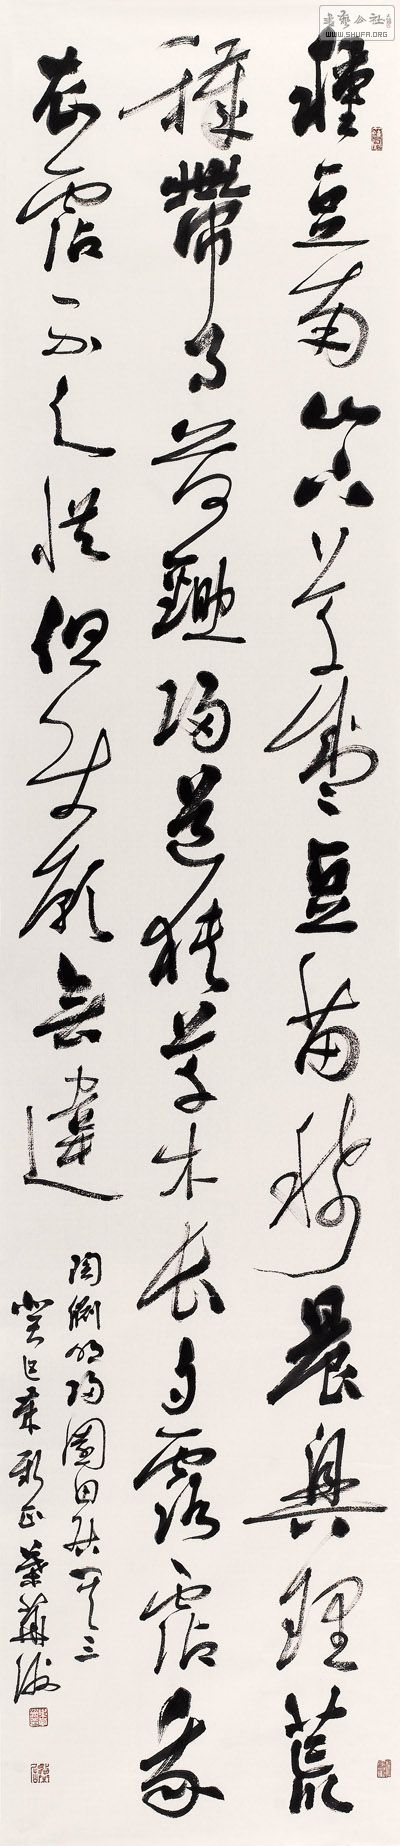 書藝公社
WWW.SHUFA.ORG
種豆南山下草盛豆苗稀晨興理荒
穢帶月荷鋤歸道狹草木長夕露霑我
衣霑不足惜但使願無違
陶淵明歸園田居其三
癸巳年新正葉